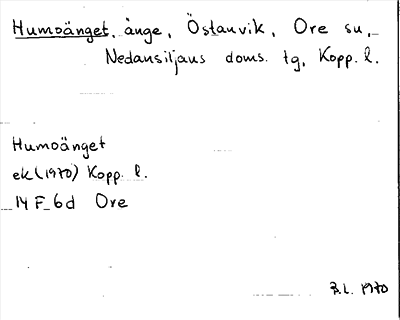 Humoänget, änge, Östanvik, Ore sn,
Nedansiljans doms. tg, Kopp. l.
Humoänget
ek (1970) Kopp. l.
14 F 6d Ore
R.L. 1970